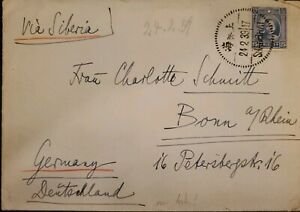 Via Siberia
24.2.39
海 上
24 2 39 17
Frau Charlotte Schmitt
Bonn a/Rhein
16 Petersbergstr. 16
Germany
Deutschland